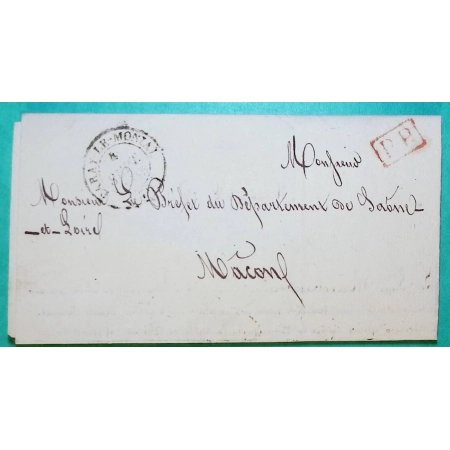 PARAY-LE-MONIAL
P.P.
Monsieur
Monsieur Le Préfet du Département de Saône
-et-Loire
Mâcon